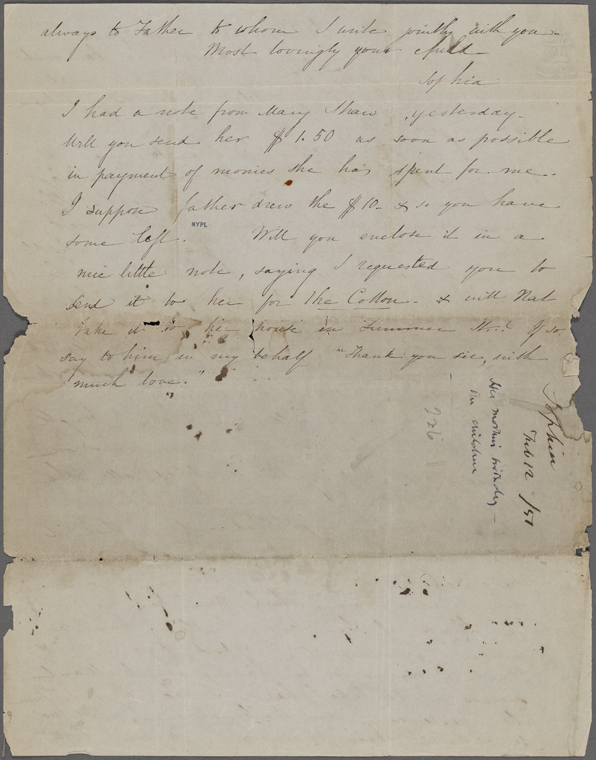 always to Father to whom I write jointly with you.
Most lovingly your child
Sophia
I had a note from Mary Shaw yesterday.
Will you send her $1.50 as soon as possible
in payment of monies she has spent for me.
I suppose father drew the $10- & so you have
some left. Will you enclose it in a
NYPL
nice little note, saying I requested you to
send it to her for the Cotton. & will Nat
take it to her house in Summer St.? If so
say to him in my behalf "Thank you sir, with
much love."
Sophia
Feb 12 /51
Her mother's birthday -
the children
226